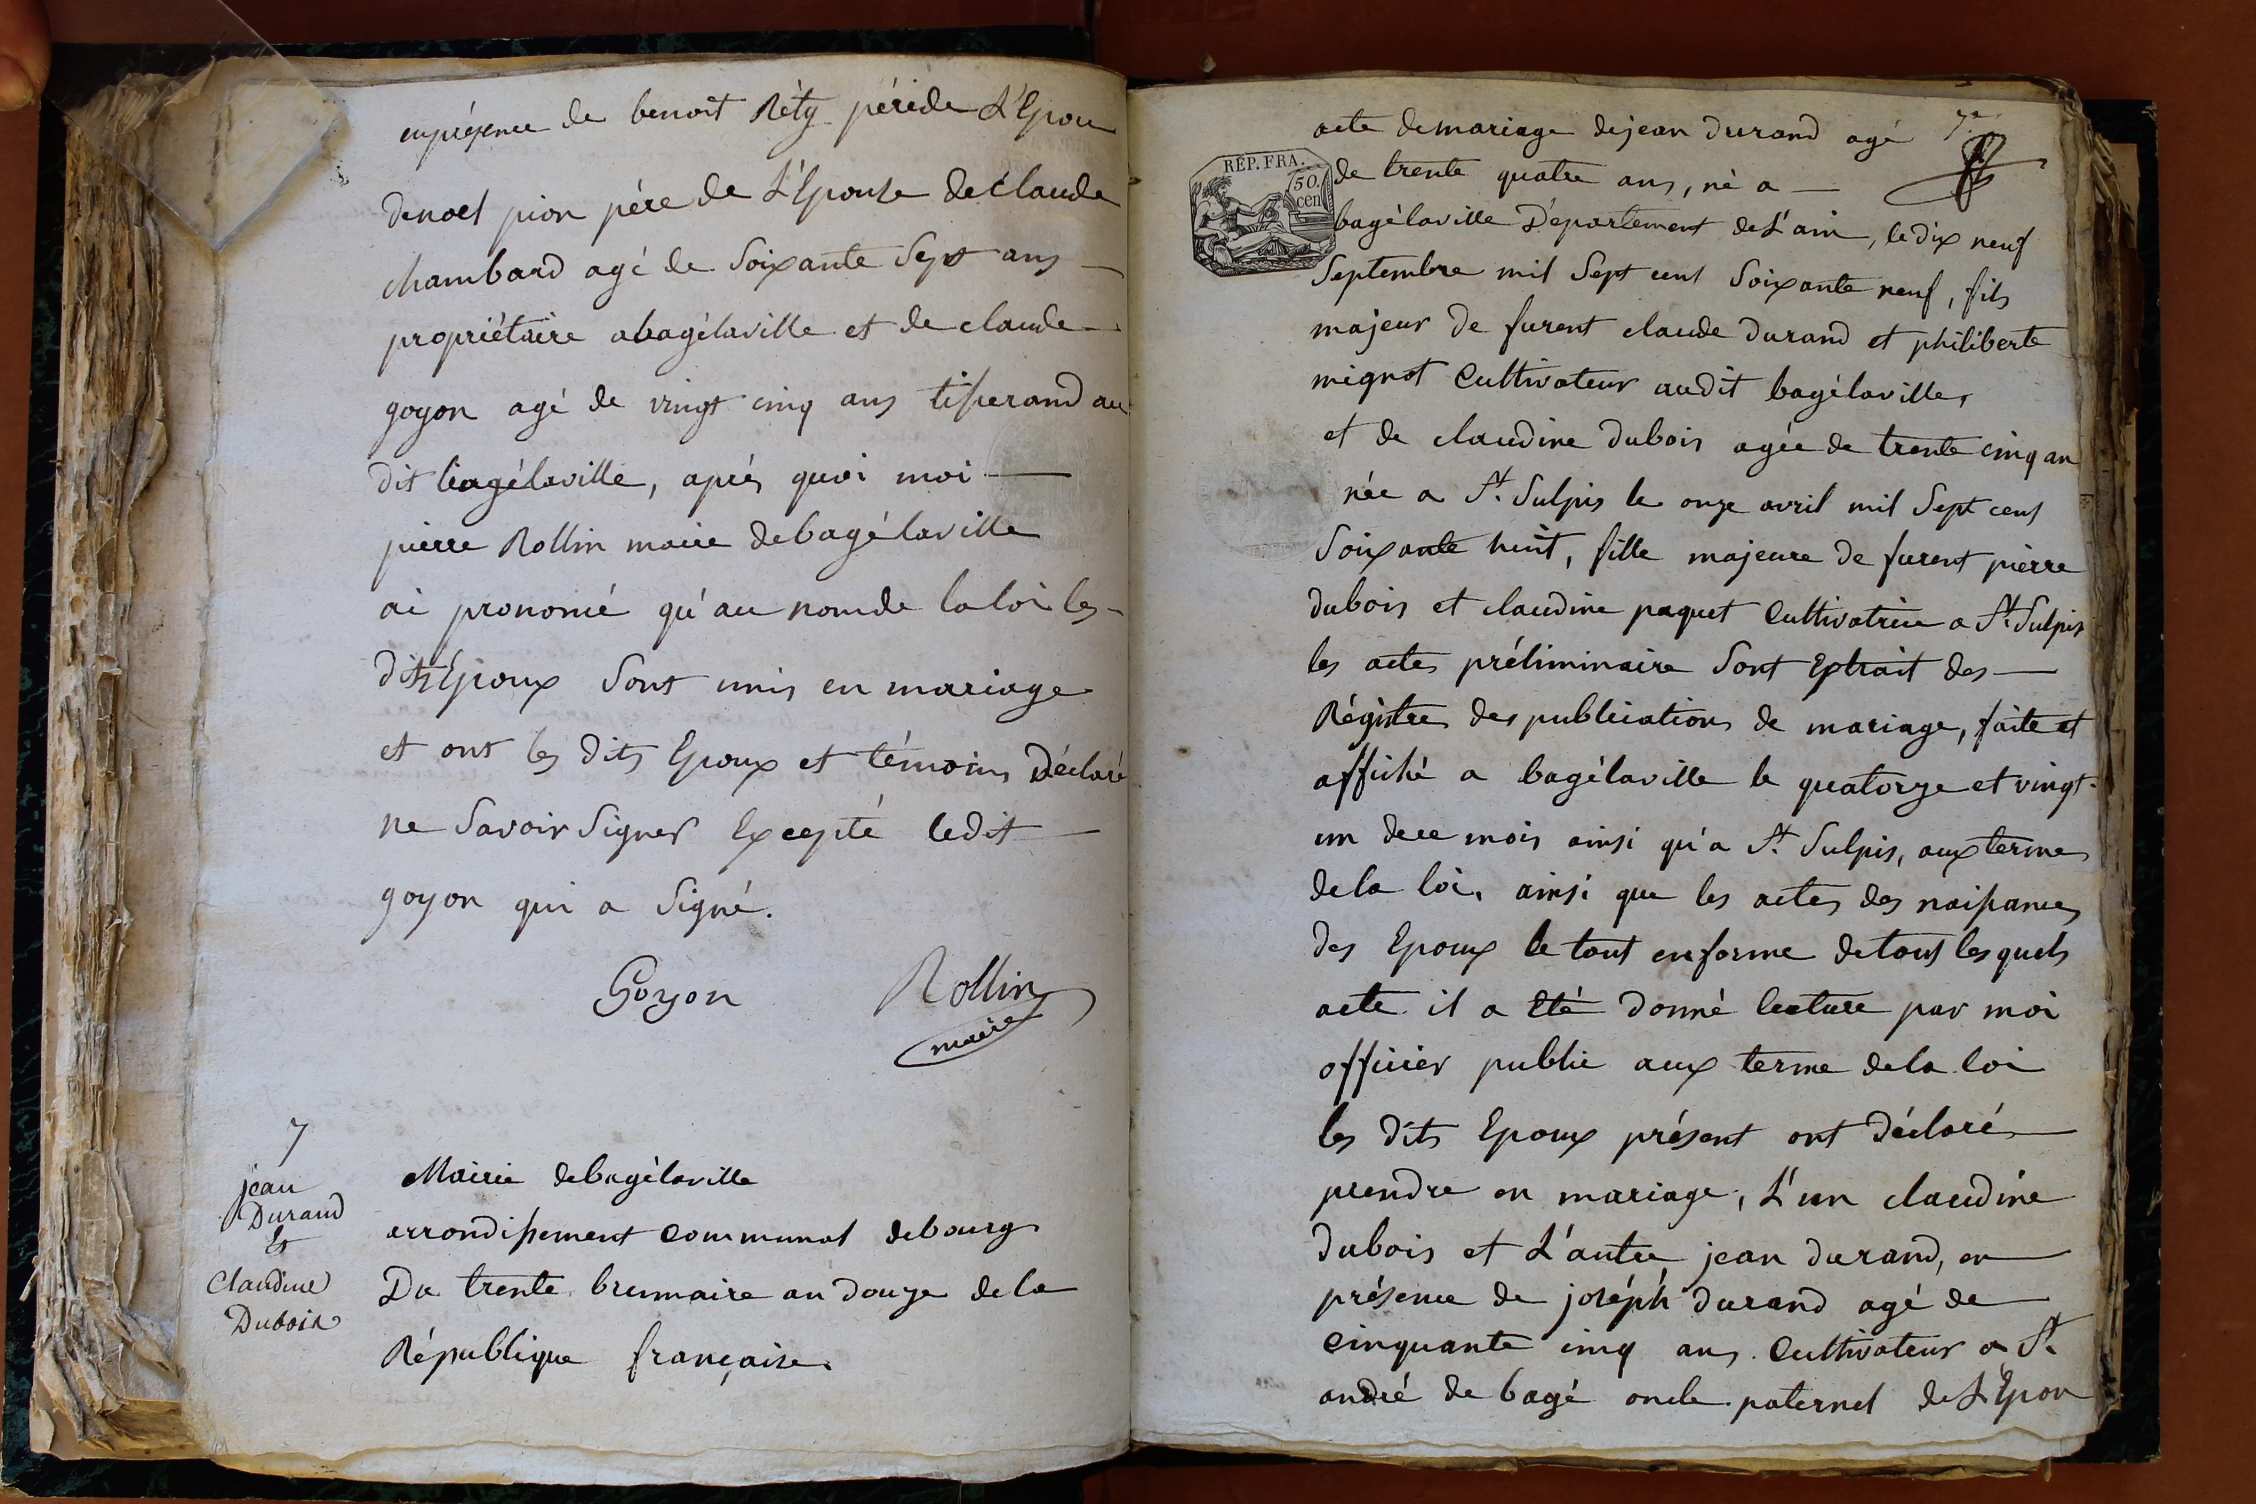 enprésence de benoit Réty péredе L'Epou
denoel pion pére de L'Epouse declaude
chambard agé de Soixante Sept ans
propriétaire abagélaville et de claude
goyon agé de vingt cinq ans tisserand au
dit bagélaville, aprés quoi moi
pierre Rollin maire debagélaville
ai prononcé qu'au nomde laloi les
dits Epoux Sont unis en mariage
et ont les dits Epoux et témoins Déclaré
ne Savoir Signer Excepté ledit
goyon qui a Signé.
Goyon Rollin
maire
7
jean
Durand
et
Claudine
Dubois
Mairie debagélaville
arrondissement communal debourg
Du trente brumaire an douze dela
République française.
acte demariage dejean durand agé
7e
RÉP.FRA.
50.
cen
de trente quatre ans, né a
bagélaville Département deL'ain, ledix neuf
Septembre mil Sept cent Soixante neuf, fils
majeur de furent claude durand et philiberte
mignot Cultivateur audit bagélaville,
et de claudine dubois agée de trente cinq an
née a St. Sulpis le onze avril mil Sept cent
Soixante huit, fille majeure de furent pierre
dubois et claudine paquet Cultivatrice a St. Sulpis
les actes préliminaire Sont Extrait des
Régistres des publications de mariage, faite et
affiché a bagélaville le quatorze et vingt
un dece mois ainsi qu'a St. Sulpis, aux termes
dela loi, ainsi que les actes des naissances
des Epoux le tout enforme detout lesquels
acte il a Eté donné lecture par moi
officier public aux terme dela loi
les dits Epoux présent ont déclaré
prendre en mariage, L'un claudine
dubois et L'autre jean durand, en
présence de joséph durand agé de
cinquante cinq ans Cultivateur a St.
andré de bagé oncle paternel de L'Epou